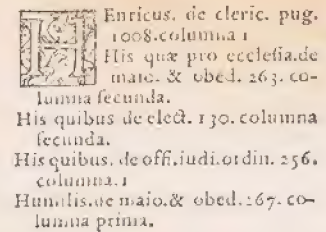 HEnricus. de cleric. pug.
1008.columna 1
His quæ pro ecclesia.de
maio. & obed. 263. co-
lumna secunda.
His quibus de elect. 130. columna
secunda.
His quibus. de offi.iudi.ordin. 256.
columna.1
Humilis.de maio.& obed.267. co-
lumna prima.